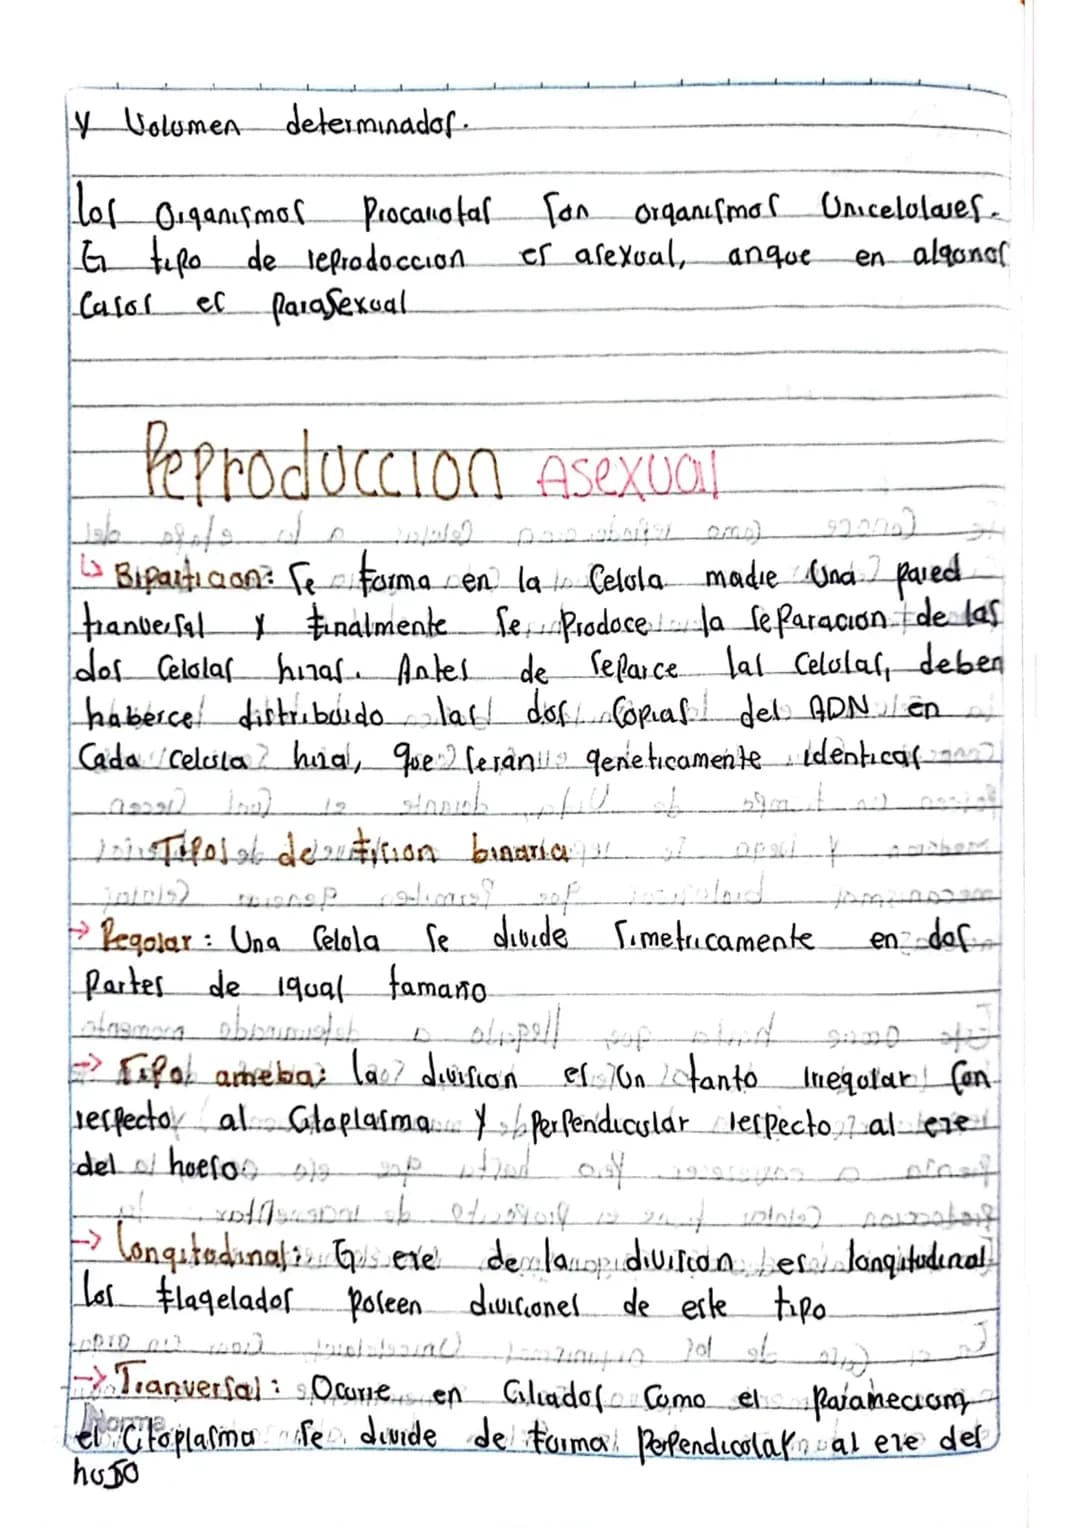 y Volumen determinados.
Los Organismos Procariotas Son organismos Unicelulares.
El tipo de reproduccion es asexual, anque en algunos
Casos es parasexual
Reproduccion Asexual
↳ Biparticion: Se forma en la Celula madre Una pared
tranversal y finalmente Se Produce la separacion de las
dos Celulas hijas. Antes de separce las Celulas, deben
haberce distribuido las dos Copias del ADN en
Cada Celula hija, que seran geneticamente identicas
Tipos de fision binaria
→ Regular: Una Celula Se divide Simetricamente en dos
Partes de igual tamaño
→ Tipo ameba: la division es Un tanto irregular Con
respecto al Citoplasma Y PerPendicular respecto al eje
del huso
→ Longitudinal: El eje de la division es longitudinal
los flagelados Poseen divisiones de este tipo
→ Tranversal: Ocurre en Ciliados Como el Paramecium
Norma
el Citoplasma Se divide de forma PerPendicular al eje del
huso